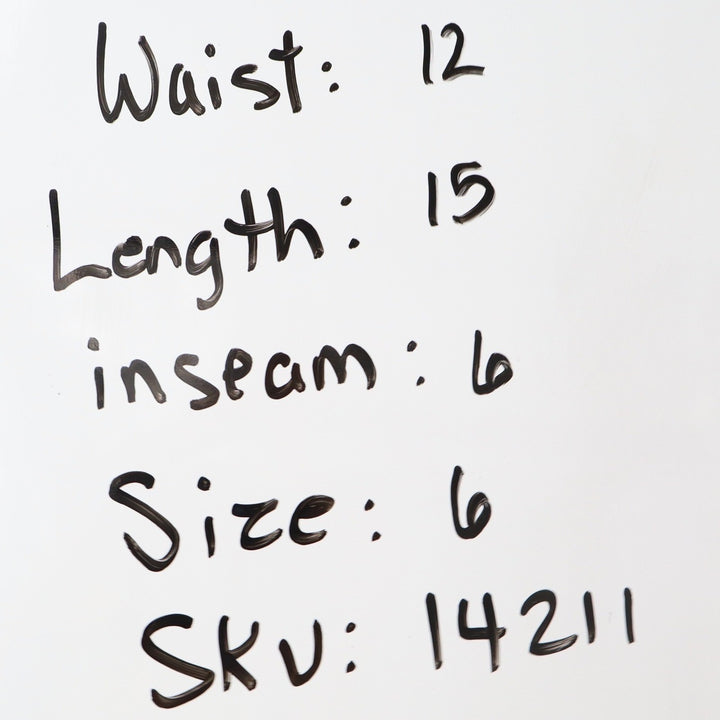 Waist: 12
Length: 15
inseam: 6
Size: 6
SKU: 14211